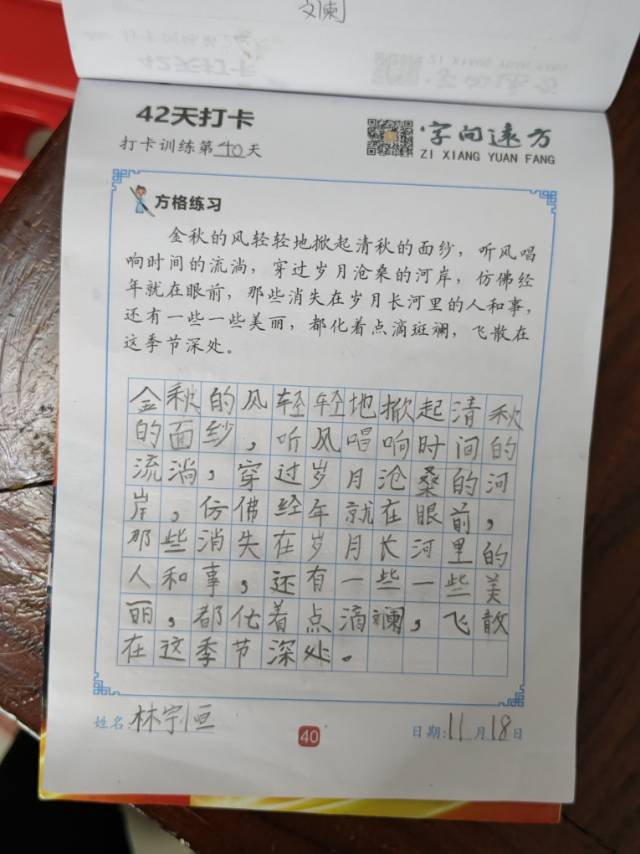 文阑
42天打卡
打卡训练第40天
字间远方
ZI XIANG YUAN FANG
方格练习
金秋的风轻轻地掀起清秋的面纱，听风唱
响时间的流淌，穿过岁月沧桑的河岸，仿佛经
年就在眼前，那些消失在岁月长河里的人和事，
还有一些一些美丽，都化着点滴斑斓，飞散在
这季节深处。
金秋的风轻轻地掀起清秋
的面纱，听风唱响时间的
流淌，穿过岁月沧桑的河
岸，仿佛经年就在眼前，
那些消失在岁月长河里的
人和事，还有一些一些美
丽，都化着点滴斓，飞散
在这季节深处。
姓名：林宇恒
40
日期：11月18日